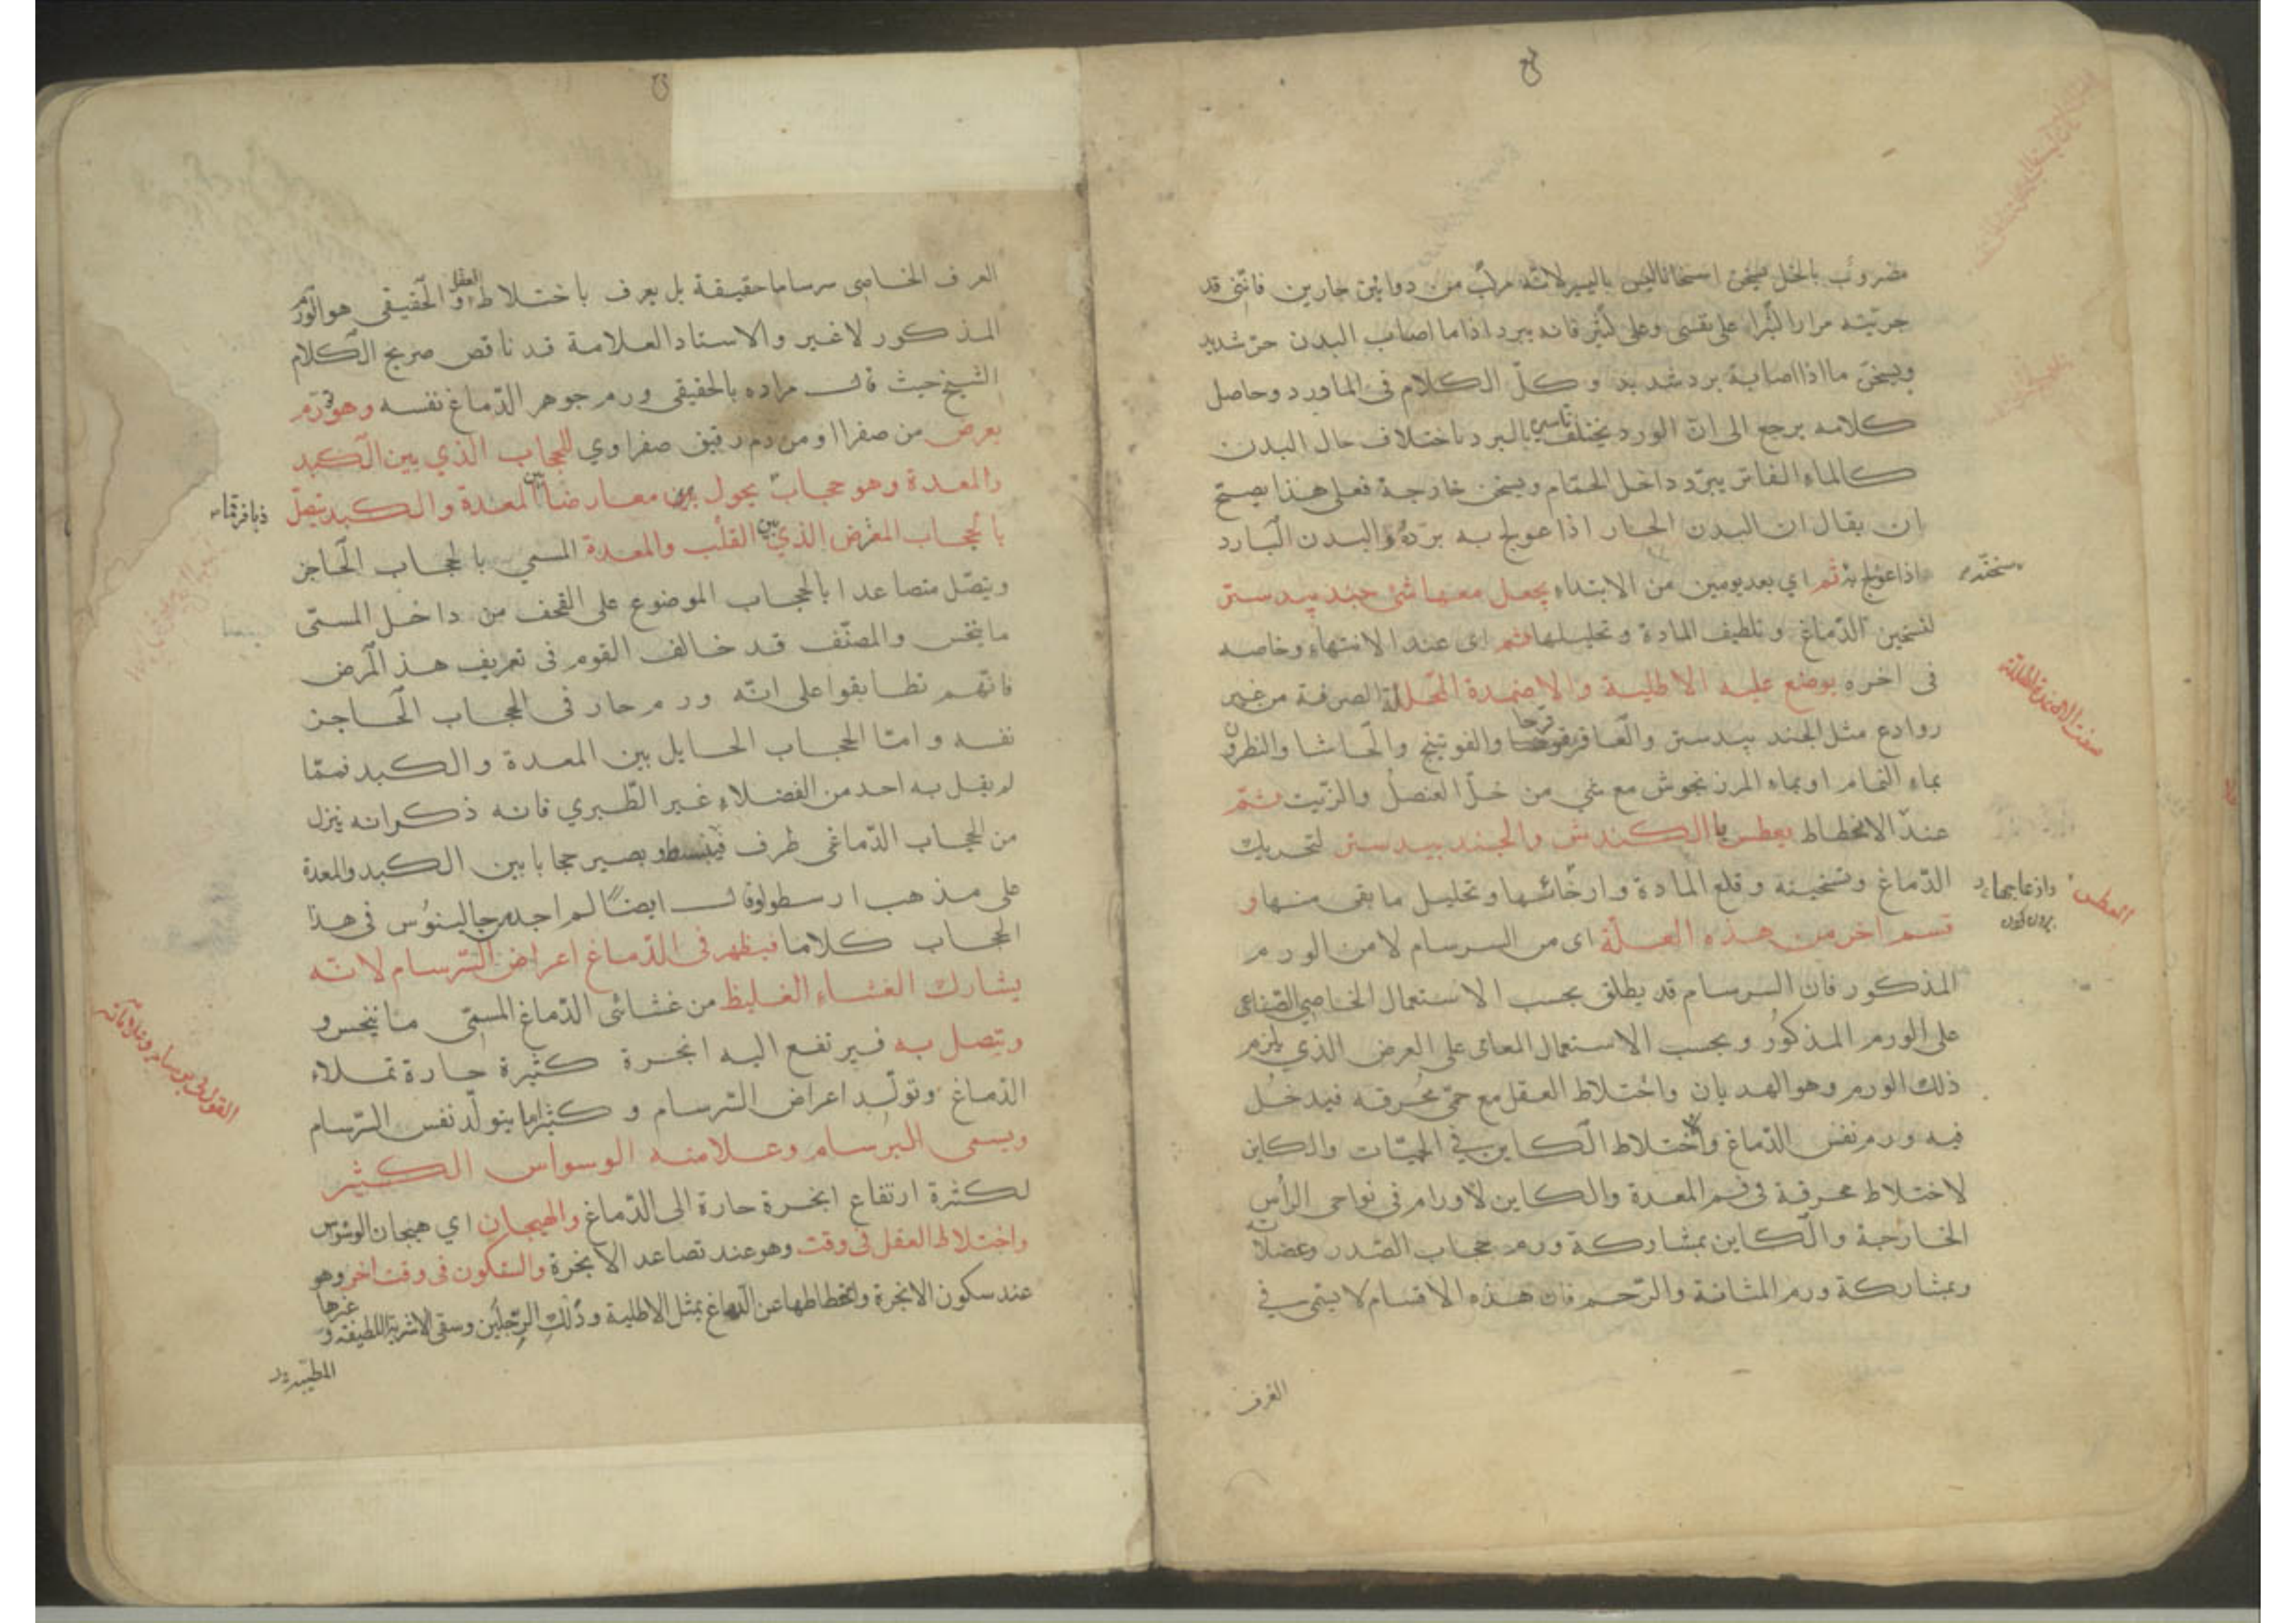 مضروب بالخل يسخن اسخانا ليس باليسير لانه مركب من دوائين حارين فانى قد
جربته مرارا كثيرا على نفسى وعلى كثير فانه يبرد اذا ما اصاب البدن حر شديد
ويسخن ما اذا اصابه برد شديد و كلّ الكلام فى الماورد وحاصل
كلامه يرجع الى انّ الورد يختلف تاثيره بالبرد باختلاف حال البدن
كالماء الفاتر يبرّد داخل الحمّام ويسخن خارجه فعلى هذا يصحّ
ان يقال ان البدن الحار اذا عولج به برّده والبدن البارد
اذا عولج به ثم اي بعد يومين من الابتداء يجعل معها شئ جند بيدستر
سخنه
لتسخين الدّماغ و تلطيف المادة و تحليلها ثم اى عند الانتهاء وخاصه
فى اخره يوضع عليه الاطلية والاضمدة المحللة الصرفة من غير
روادع مثل الجند بيدستر والعاقرقرحا والفوتينج والحاشا والنطرون
بماء النمام او بماء المرزنجوش مع شي من خلّ العنصل والزّيت ثمّ
عند الانحطاط يعطس بالكندش والجند بيدستر لتحريك
الدّماغ وتسخينه و قلع المادة وارخائها وتحليل ما بقى منها و
العطس
قسم اخر من هذه العلّة اى من السرسام لا من الورم
المذكور فان السرسام قد يطلق بحسب الاستعمال الخاصي الصّناعى
على الورم المذكور و بحسب الاستعمال العامى على العرض الذي يلزم
ذلك الورم وهو الهذيان واختلاط العقل مع حمّى محرقه فيدخل
فيه ورم نفس الدّماغ والاختلاط الكاين في الحميّات والكاين
لاختلاط محرقة فى فم المعدة والكاين لاورام فى نواحى الرأس
الخارجة والكاين بمشاركة ورم حجاب الصّدر وعضلاته
وبمشاركة ورم المثانة والرّحم فان هذه الاقسام لا يسمى في
العرف
العرف الخاصى سرساما حقيقة بل يعرف باختلاط العقل و الحقيقى هو الورم
المذكور لا غير والاستاد العلامة قد ناقض صريح الكلام
الشيخ حيث قال مراده بالحقيقى ورم جوهر الدّماغ نفسه وهو ورم
يعرض من صفرا او من دم رقيق صفراوي للحجاب الذي بين الكبد
والمعدة وهو حجاب يحول معارضا بين المعدة والكبد يتصل
بالحجاب المعرض الذي بين القلب والمعدة المسمي بالحجاب الحاجز
ويتصّل متصاعدا بالحجاب الموضوع على القحف من داخل المسمّى
ماننخس والمصنّف قد خالف القوم فى تعريف هذ المرض
فانهم تطابقوا على انّه ورم حار فى الحجاب الحاجز
نفسه وامّا الحجاب الحايل بين المعدة والكبد فممّا
لم يقل به احد من الفضلاء غير الطّبري فانه ذكر انه ينزل
من الحجاب الدّماغى طرف فينبسط و يصير حجابا بين الكبد والمعدة
على مذهب ارسطو وقال ايضًا لم اجد من جالينوس فى هذا
الحجاب كلاما فيظهر فى الدّماغ اعراض السّرسام لانّه
يشارك الغشاء الغليظ من غشائى الدّماغ المسمّى ماننخس و
ويتصل به فيرتفع اليه ابخرة كثيرة حارة تملاء
الدّماغ وتولّد اعراض السّرسام و كثيرا ما يتولّد نفس السّرسام
ويسمى البرسام وعلامته الوسواس الكثير
لكثرة ارتفاع ابخرة حارة الى الدّماغ والهيجان اي هيجان الوسواس
واختلاط العقل فى وقت وهو عند تصاعد الابخرة والسّكون فى وقت اخر وهو
عند سكون الابخرة وانحطاطها عن الدماغ بمثل الاطلية و ذلك الرّجلين وسقى الاشربة اللطيفة و غيرها